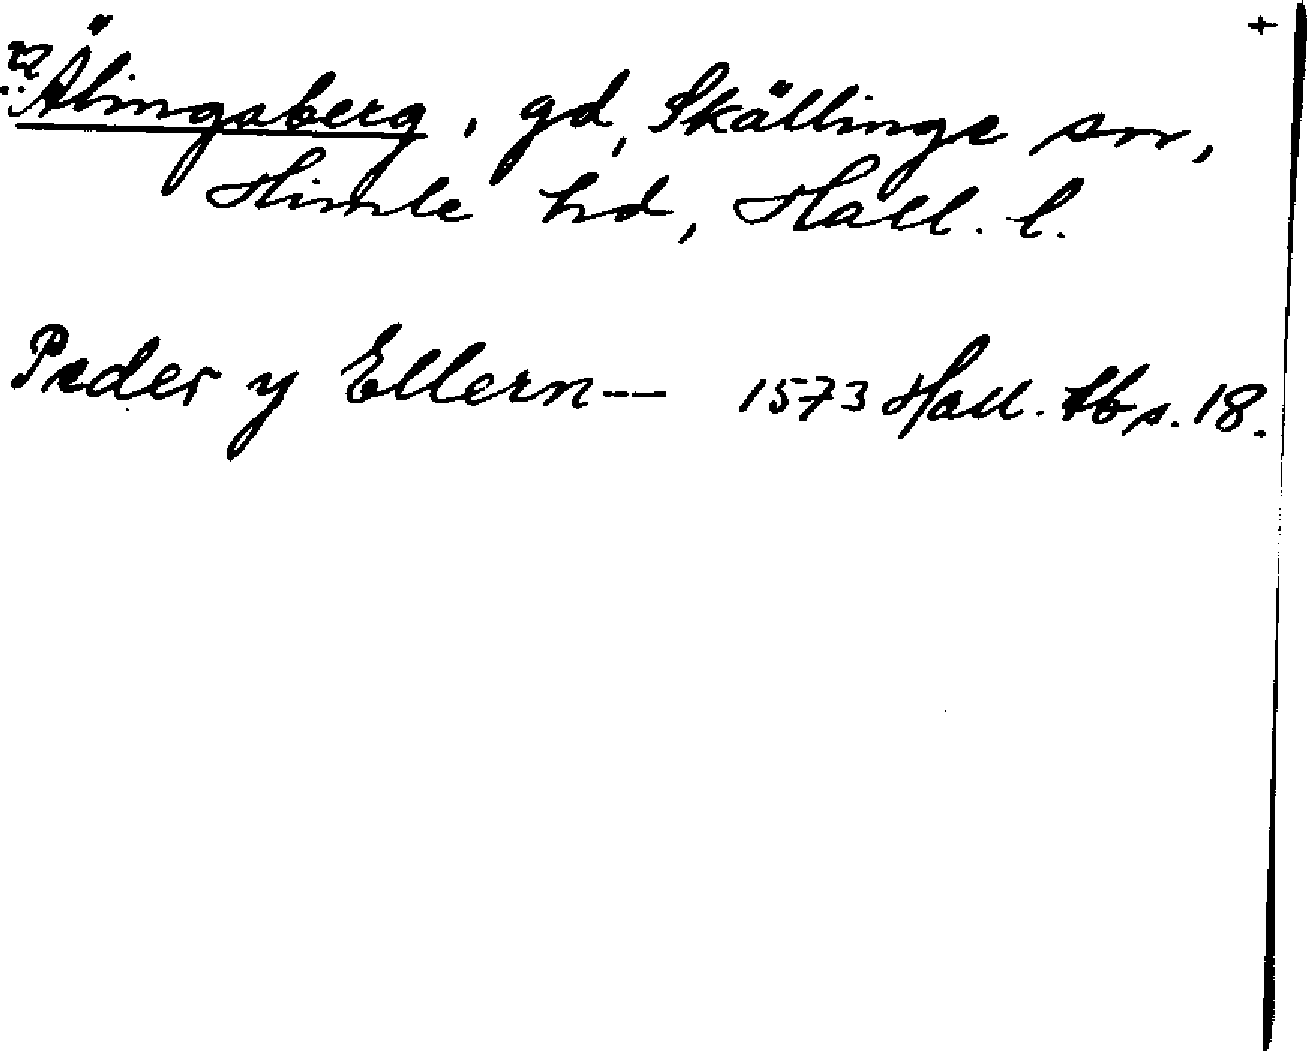 +
Älingaberg, gd, Skällinge sn,
Himle hd, Hall. l.
Peder y Ellern-- 1573 Hall. tb s. 18.